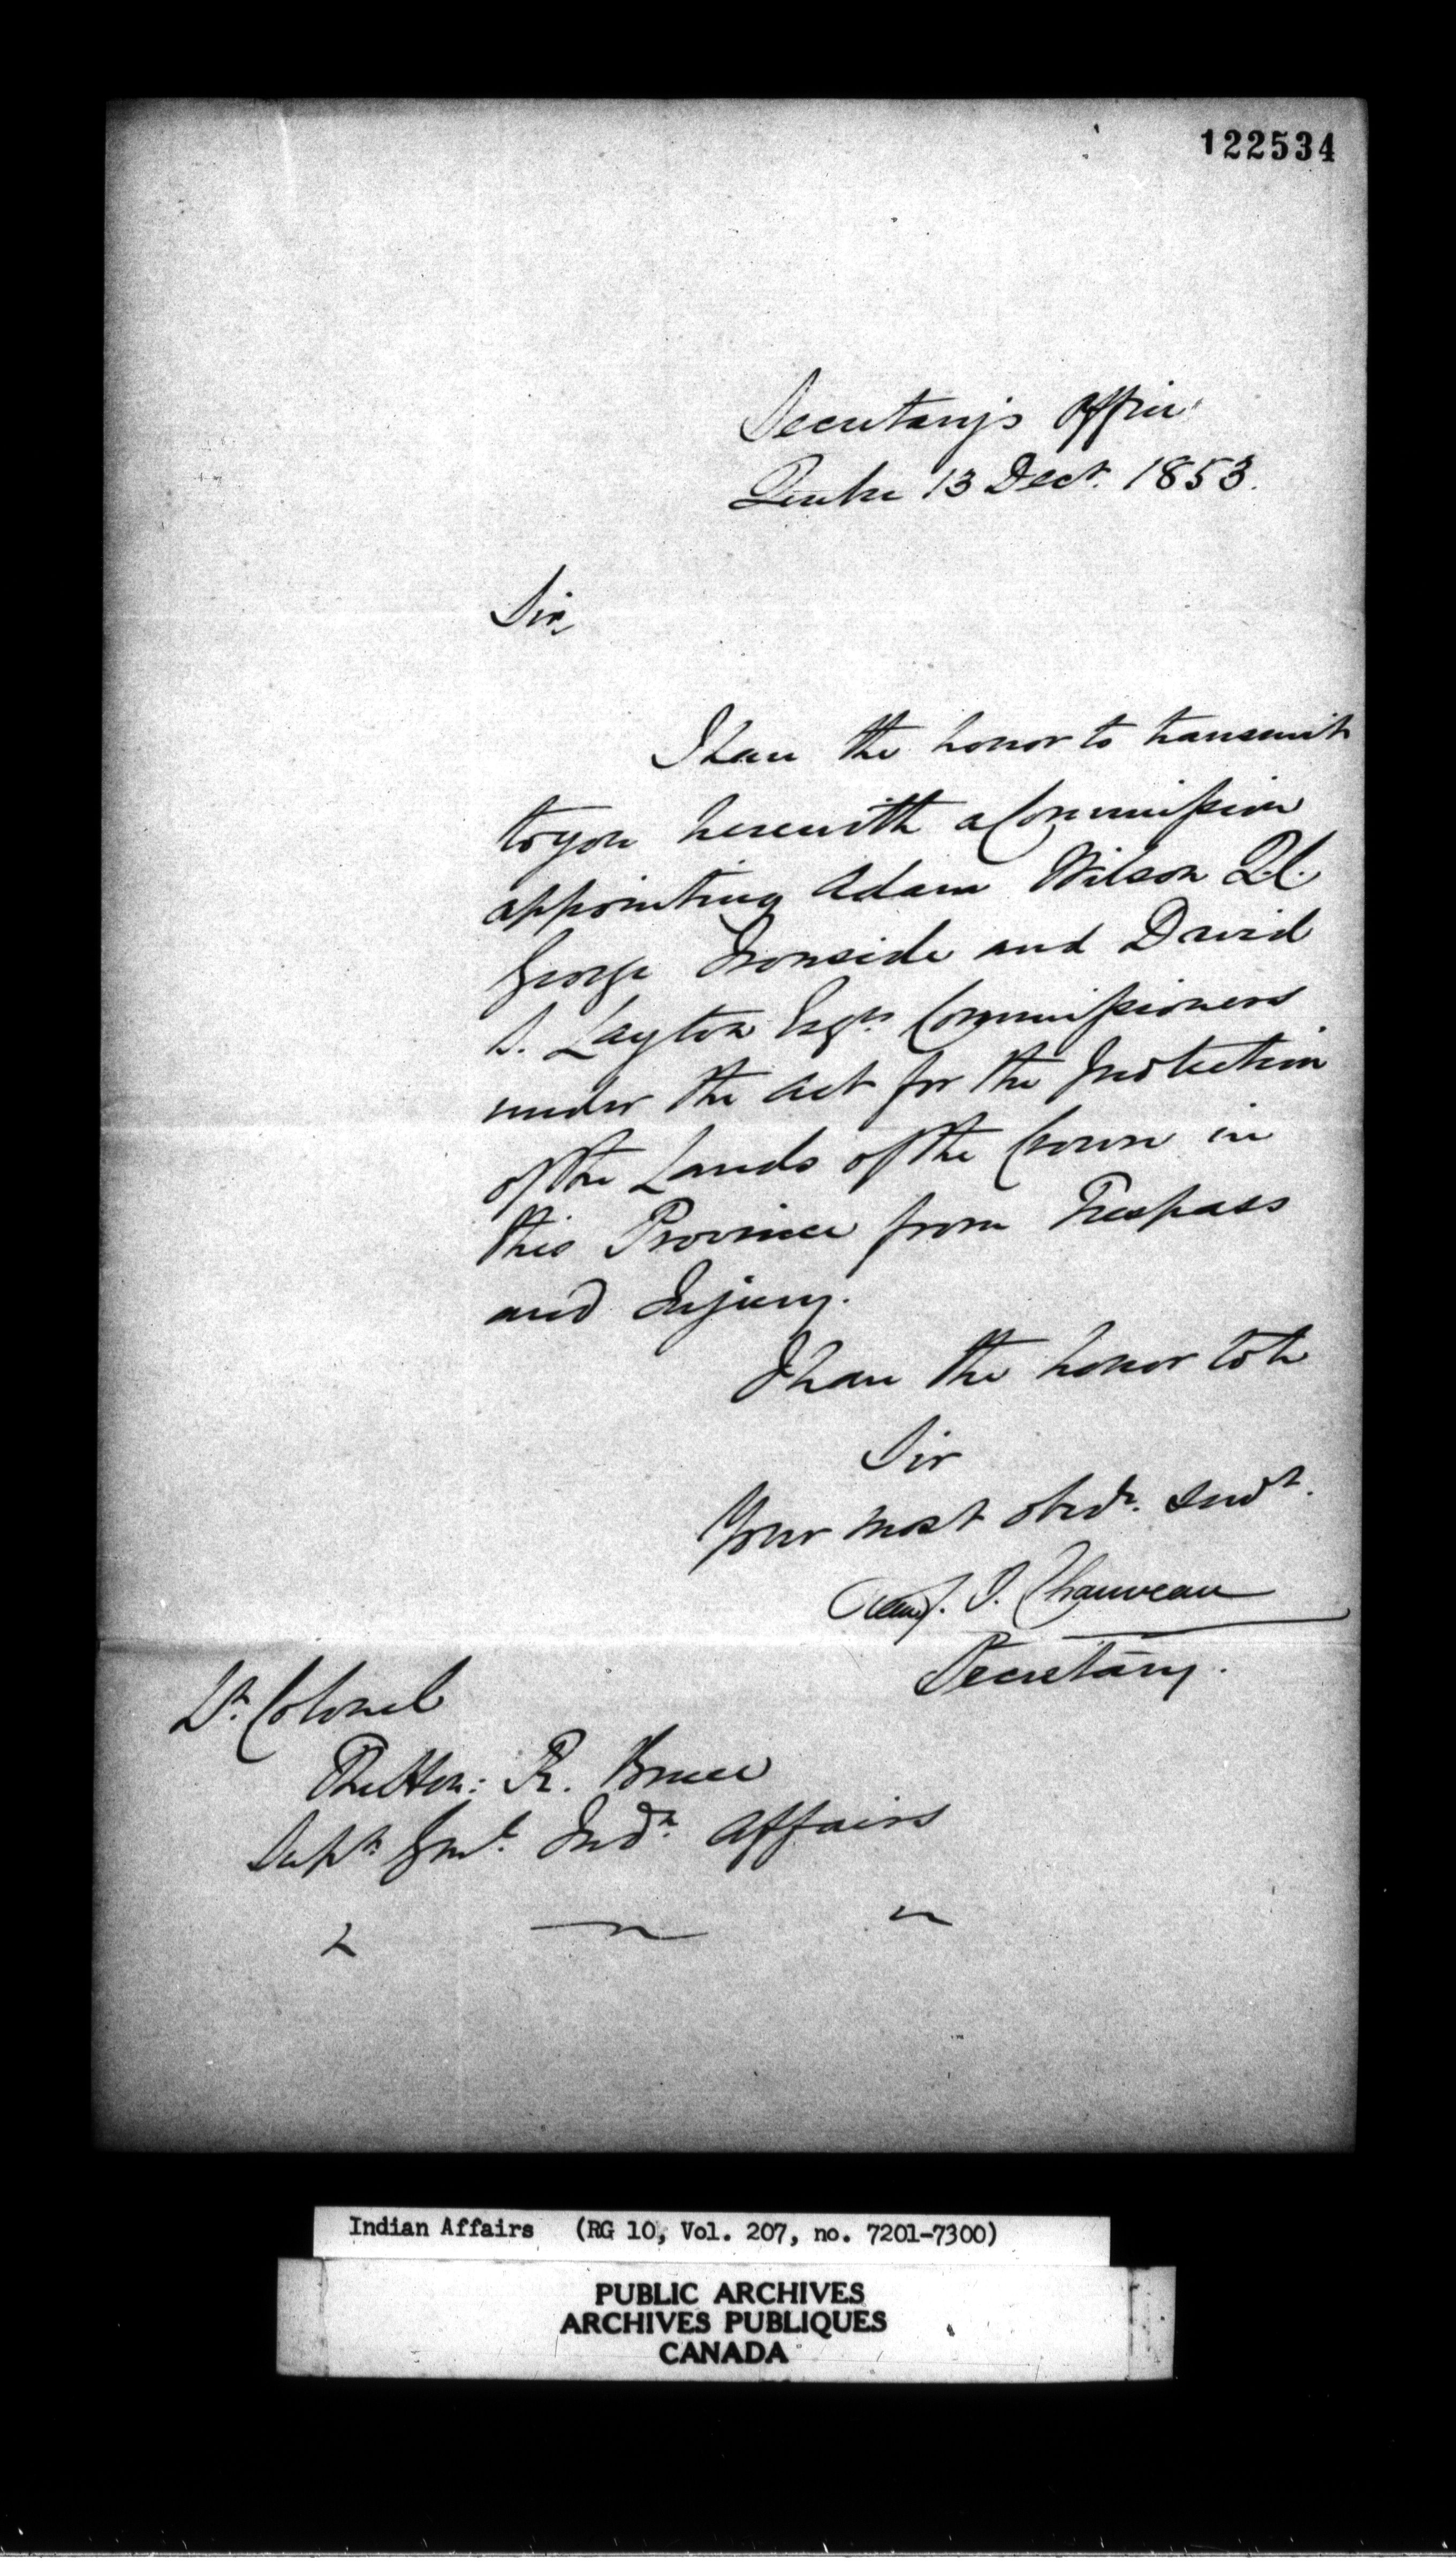 122534
Secretary's Office
Quebec 13 Decr. 1853.
Sir,
I have the honor to transmit
to you herewith a Commission
appointing Adam Wilson Q.C.
George Ironside and David
S. Layton Esqrs Commissioners
under the Act for the Protection
of the Lands of the Crown in
this Province from Trespass
and Injury.
I have the honor to be
Sir
Your most obedt. Servt.
J. O. Chauveau
Secretary.
Lt. Colonel
The Hon: R. Bruce
Supt. Genl. Indn. Affairs
Indian Affairs (RG 10, Vol. 207, no. 7201-7300)
PUBLIC ARCHIVES
ARCHIVES PUBLIQUES
CANADA